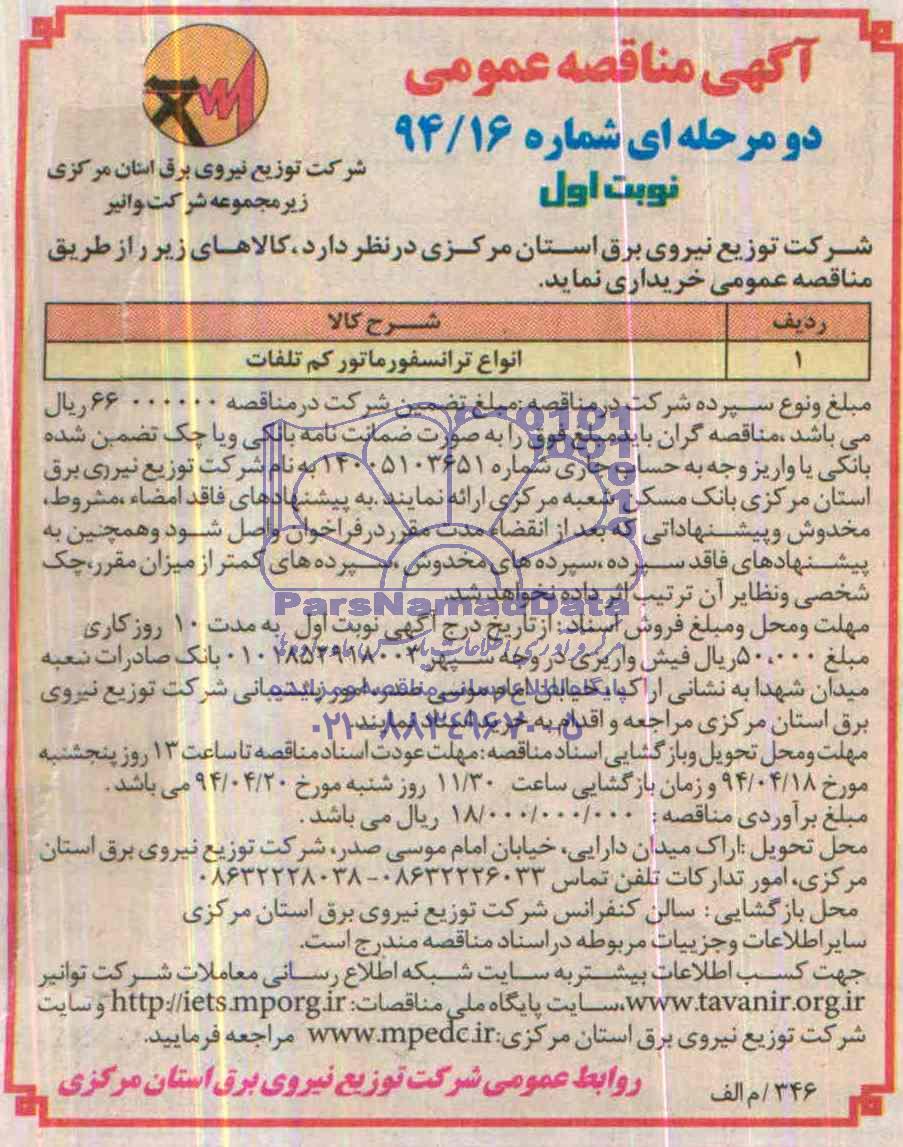 آگهی مناقصه عمومی
دو مرحله ای شماره ۹۴/۱۶
نوبت اول
شرکت توزیع نیروی برق استان مرکزی
زیرمجموعه شرکت توانیر
شرکت توزیع نیروی برق استان مرکزی درنظر دارد، کالاهای زیر را از طریق
مناقصه عمومی خریداری نماید.
ردیف شرح کالا
۱ انواع ترانسفورماتور کم تلفات
مبلغ ونوع سپرده شرکت درمناقصه: مبلغ تضمین شرکت درمناقصه ۶۶۰۰۰۰۰۰۰ ریال
می باشد، مناقصه گران باید مبلغ فوق را به صورت ضمانت نامه بانکی ویا چک تضمین شده
بانکی یا واریز وجه به حساب جاری شماره ۱۴۰۰۵۱۰۳۶۵۱ به نام شرکت توزیع نیروی برق
استان مرکزی بانک مسکن شعبه مرکزی ارائه نمایند. به پیشنهادهای فاقد امضاء، مشروط،
مخدوش وپیشنهاداتی که بعد از انقضاء مدت مقرر درفراخوان واصل شود وهمچنین به
پیشنهادهای فاقد سپرده، سپرده های مخدوش، سپرده های کمتر از میزان مقرر، چک
شخصی ونظایر آن ترتیب اثر داده نخواهد شد.
ParsNamadData
مهلت ومحل ومبلغ فروش اسناد: از تاریخ درج آگهی نوبت اول به مدت ۱۰ روز کاری
مبلغ ۵۰،۰۰۰ ریال فیش واریزی در وجه سپهر بانک صادرات شعبه
میدان شهدا به نشانی اراک، خیابان امام موسی صدر، امور پشتیبانی شرکت توزیع نیروی
برق استان مرکزی مراجعه و اقدام به خرید اسناد نمایند.
۰۲۱-۸۸۳۴۹۶۷۰-۵
مهلت ومحل تحویل وبازگشایی اسناد مناقصه: مهلت عودت اسناد مناقصه تا ساعت ۱۳ روز پنجشنبه
مورخ ۹۴/۰۴/۱۸ و زمان بازگشایی ساعت ۱۱/۳۰ روز شنبه مورخ ۹۴/۰۴/۲۰ می باشد.
مبلغ برآوردی مناقصه: ۱۸/۰۰۰/۰۰۰/۰۰۰ ریال می باشد.
محل تحویل: اراک میدان دارایی، خیابان امام موسی صدر، شرکت توزیع نیروی برق استان
مرکزی، امور تدارکات تلفن تماس ۰۸۶۳۲۲۲۶۰۳۳-۰۸۶۳۲۲۲۸۰۳۸
محل بازگشایی: سالن کنفرانس شرکت توزیع نیروی برق استان مرکزی
سایر اطلاعات وجزییات مربوطه در اسناد مناقصه مندرج است.
جهت کسب اطلاعات بیشتر به سایت شبکه اطلاع رسانی معاملات شرکت توانیر
www.tavanir.org.ir، سایت پایگاه ملی مناقصات: http://iets.mporg.ir و سایت
شرکت توزیع نیروی برق استان مرکزی: www.mpedc.ir مراجعه فرمایید.
۳۴۶/م الف
روابط عمومی شرکت توزیع نیروی برق استان مرکزی